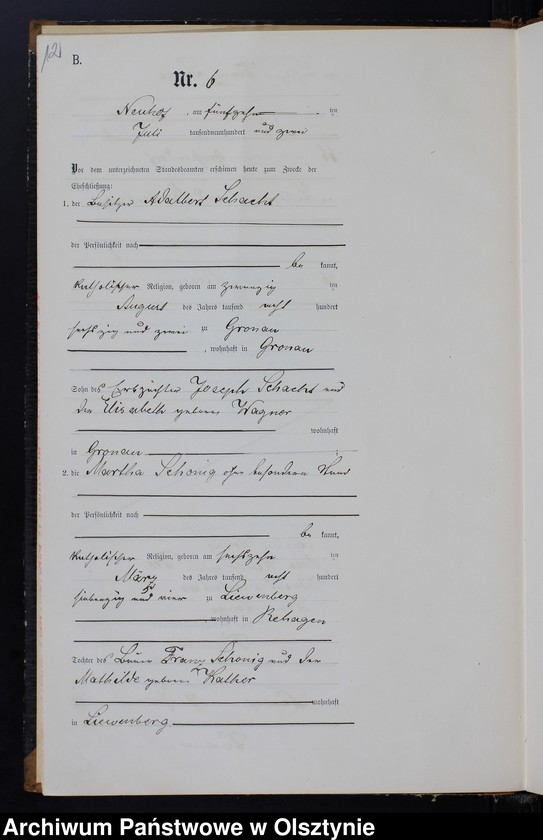 B.
Nr. 6
Neuhof, am fünfzehn ten
Juli tausendneunhundert und zwei
Vor dem unterzeichneten Standesbeamten erschienen heute zum Zwecke der
Eheschließung:
1. der Besitzer Adalbert Schacht
der Persönlichkeit nach
be kannt,
katholischer Religion, geboren am zwanzig ten
August des Jahres tausend acht hundert
sechszig und zwei zu Gronau
, wohnhaft in Gronau
Sohn des Erbpächter Joseph Schacht und
der Elisabeth geborene Wagner
wohnhaft
in Gronau
2. die Martha Schönig ohne besondern Stand
der Persönlichkeit nach
be kannt,
katholischer Religion, geboren am sechszehn ten
März des Jahres tausend acht hundert
siebenzig und vier zu Liewenberg
, wohnhaft in Rehagen
Tochter des Bauer Franz Schönig und der
Mathilde geborene Kather
wohnhaft
in Liewenberg
Archiwum Państwowe w Olsztynie